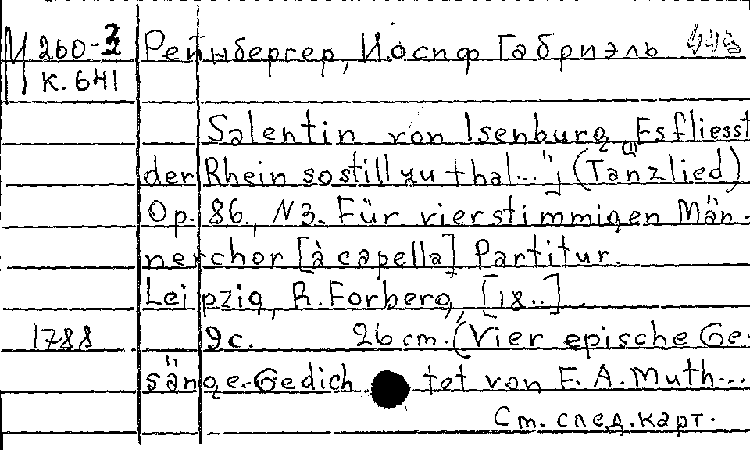 Ц 260-3 Рейнбергер, Иосиф Габриэль
к. 641
Salentin von Isenburg „Es fliesst
der Rhein so still zu thal..." (Tanzlied)
Op. 86., N3. Für vierstimmigen Män-
nerchor [à capella] Partitur.
Leipzig, R. Forberg, [18..]
1788 9 с. 26 cm. (Vier epische Ge-
sänge. Gedichtet von F. A. Muth...
См. след. карт.